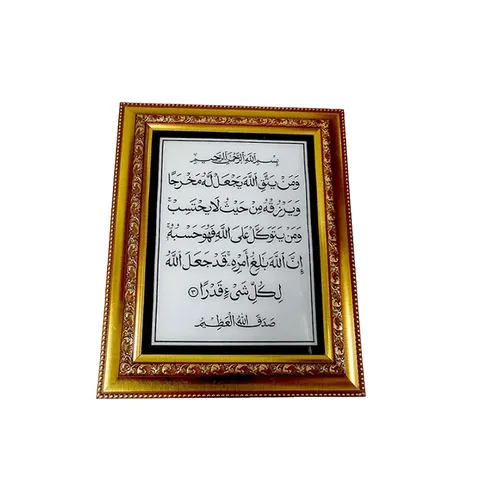 بِسْمِ اللَّهِ الرَّحْمَٰنِ الرَّحِيمِ
وَمَنْ يَتَّقِ اللَّهَ يَجْعَلْ لَهُ مَخْرَجًا
وَيَرْزُقْهُ مِنْ حَيْثُ لَا يَحْتَسِبُ
وَمَنْ يَتَوَكَّلْ عَلَى اللَّهِ فَهُوَ حَسْبُهُ
إِنَّ اللَّهَ بَالِغُ أَمْرِهِ قَدْ جَعَلَ اللَّهُ
لِكُلِّ شَيْءٍ قَدْرًا ٣
صَدَقَ اللَّهُ الْعَظِيمُ